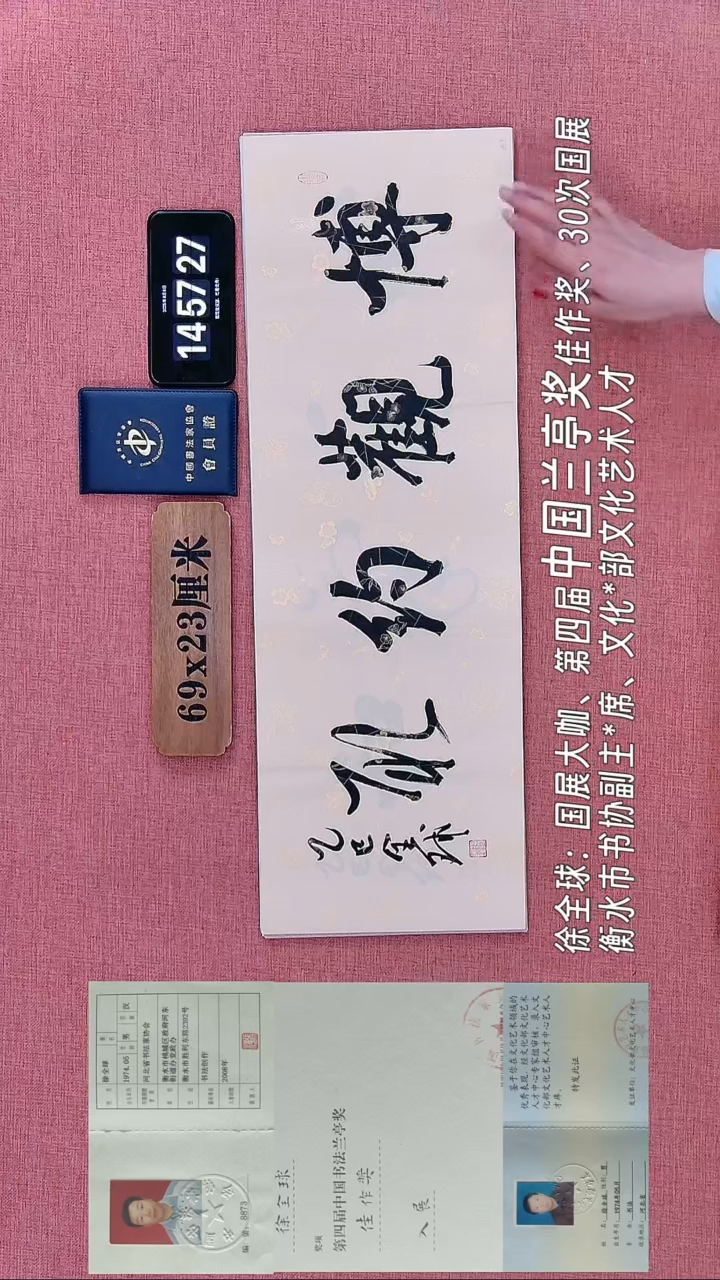 69x23厘米
中國書法家協會
會員證
14 57 27
博觀約取
乙巳
全球
徐全球：国展大咖、第四届中国兰亭奖佳作奖、30次国展
衡水市书协副主*席、文化*部文化艺术人才
徐全球
1974.05 男 汉
河北省书法家协会
衡水市桃城区政府河东
街道办党政办
衡水市胜利东路2302号
书法创作
2008年
8873
徐全球
奖项
第四届中国书法兰亭奖
佳作奖
入展
鉴于你在文化艺术领域的
优秀表现，经文化部文化艺术
人才中心专家组审核，录入文
化部文化艺术人才中心艺术人
才库。
特发此证